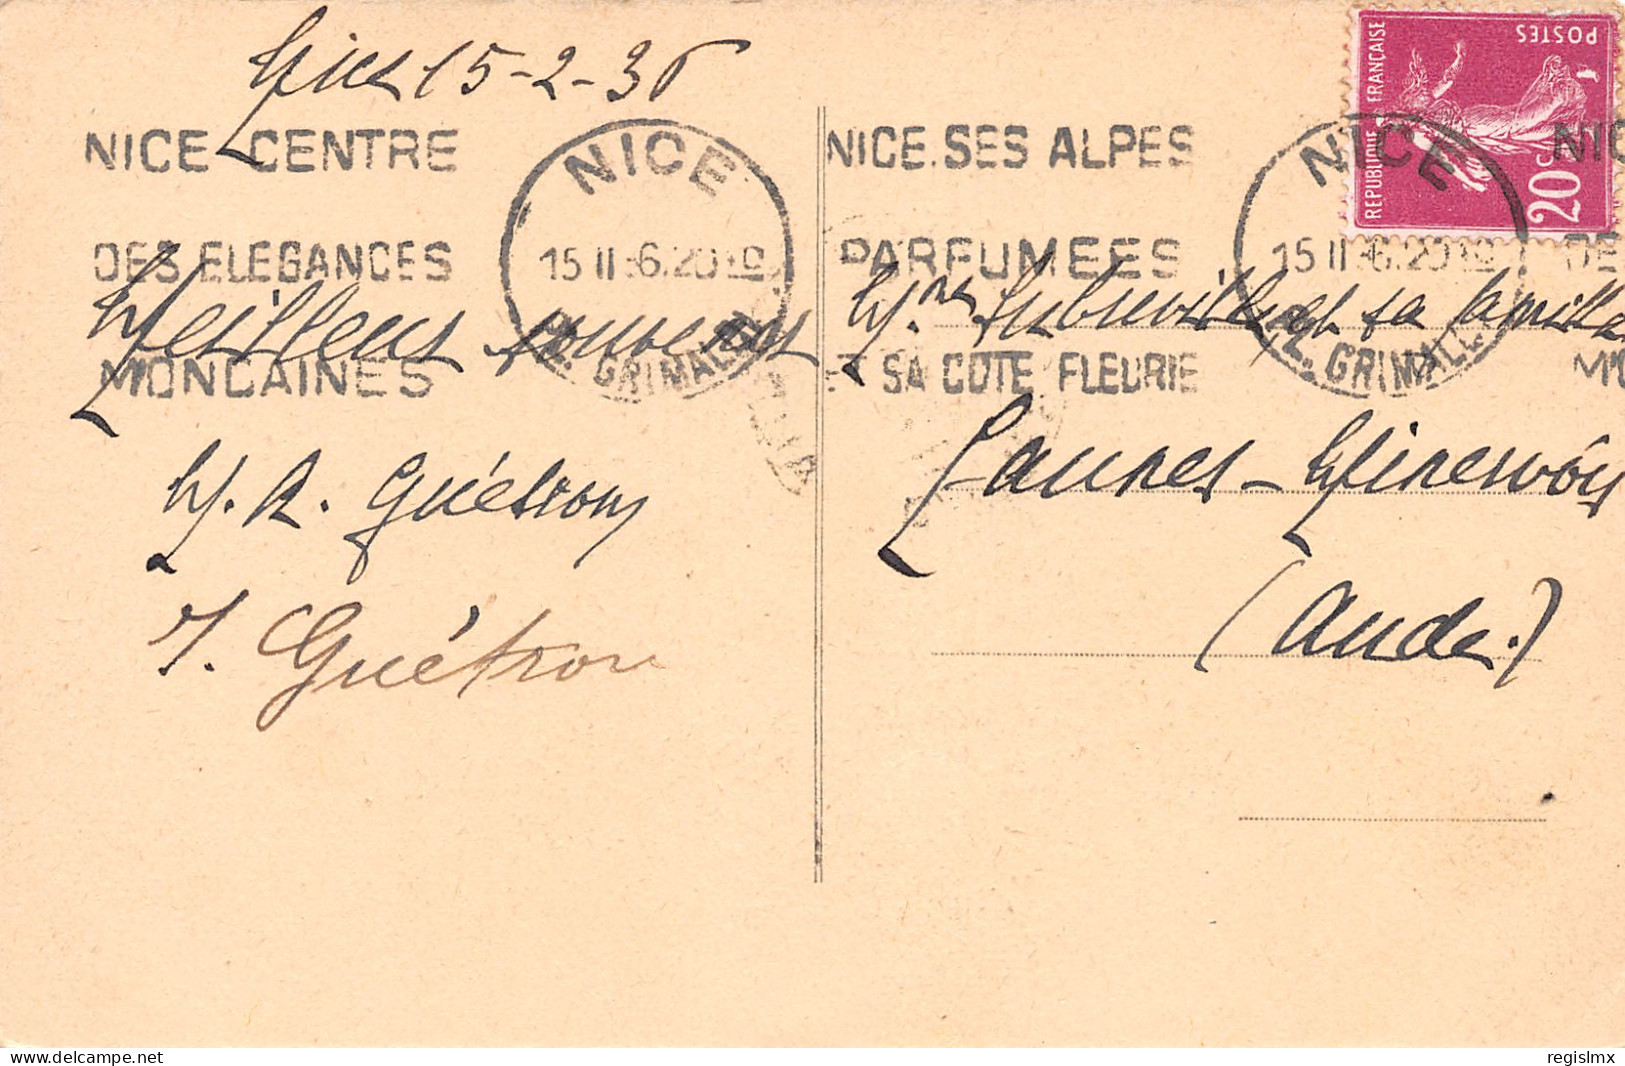 Nice 15-2-36
NICE CENTRE
DES ELEGANCES
MONDAINES
NICE
15 II 36.20
GRIMALDI
Meilleurs souvenirs
M. R. Guétron
J. Guétron
NICE.SES ALPES
PARFUMEES
ET SA COTE FLEURIE
POSTES
REPUBLIQUE FRANÇAISE
20 C.
NICE
15 II 36.20
GRIMALDI
NIC
DE
MO
Mme et sa famille
Laures-Minervois
(Aude.)
www.delcampe.net
regislmx